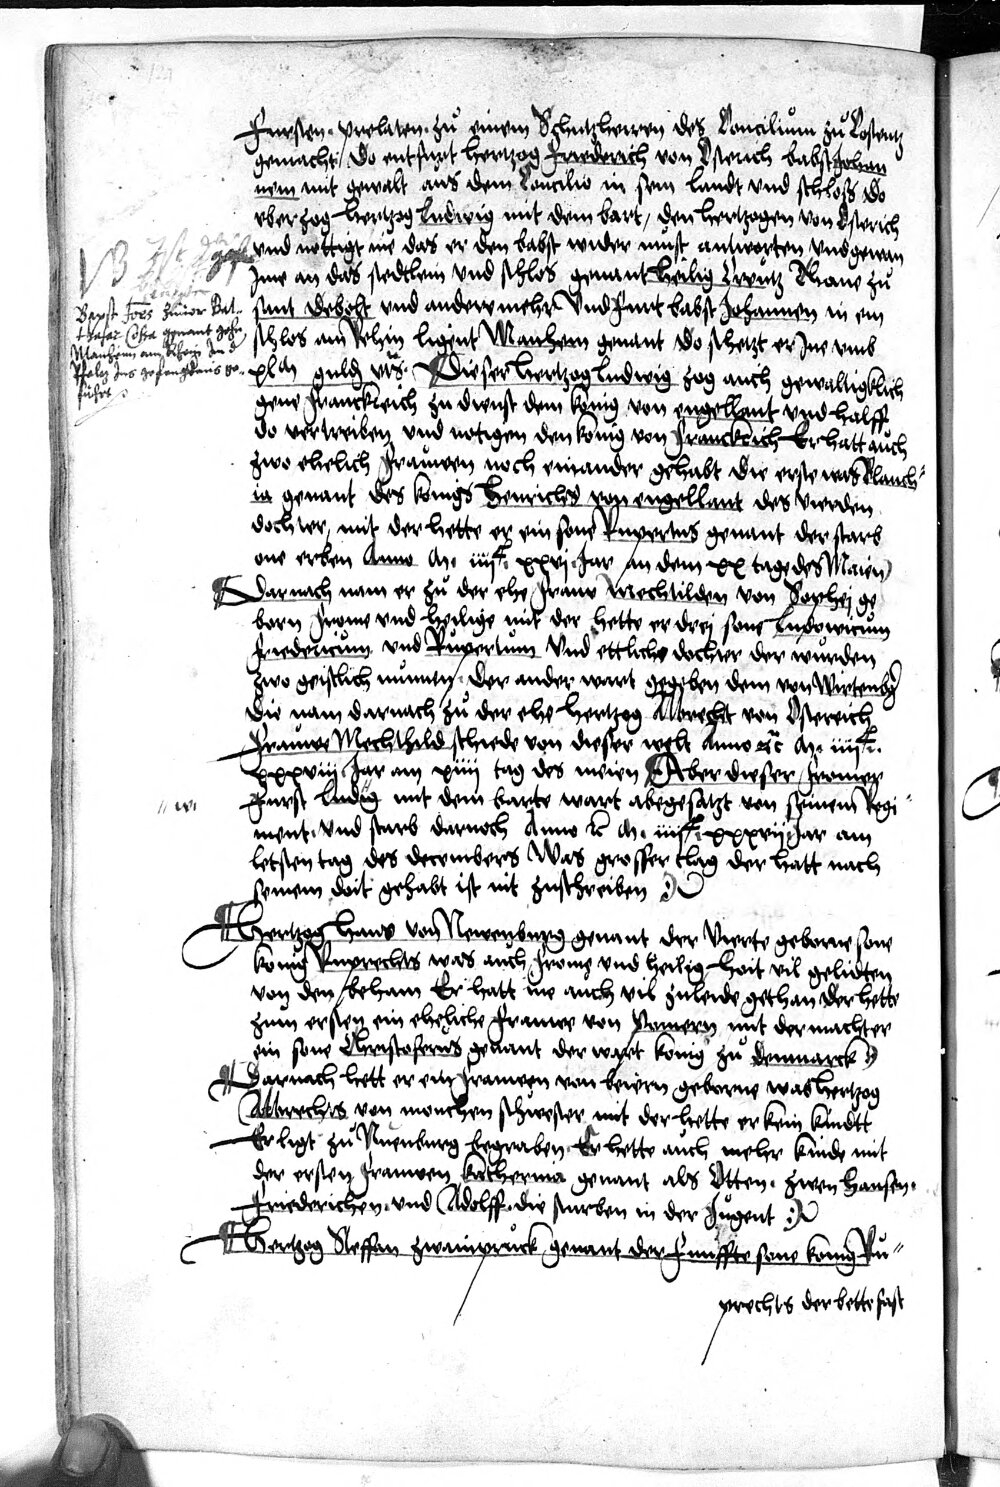 Fursten prelaten zu einem Schutzherren des Concilium zu Costentz
gemacht / Do entfurt hertzog Friederich von Osterich babst Johan
nem mit gewalt aus dem Concilio in sein landt und schloß Do
uber zog hertzog Ludwig mit dem bart / den hertzogen von Osterich
und nottigt ine das er den babst wider must antworten und gewan
Ime an das stedtlein und schlos genant heilig Creutz Thane zu
sant und ander mehr Und furt babst Johannem in ein
schlos am Rehin ligent Manhem genant do schetzt er Ine umb
guld Dieser hertzog Ludwig zog auch gewaltigklich
gene Franckreich zu dienst dem konig von engellant und halff
do vertreiben und notigen den konig von Franckrich Er hatt auch
zwo ehelich Frauwen noch einander gehabt die erste was Blanch"
ia genant des konigs Henrichs von engellant des vierden
dochter, mit der hette er ein sone Rupertus genant der starb
one erben Anno M. iiijC. xxvj Jar an dem xx tage des Maien
Darnach nam er zu der ehe Frauw Mechtilden von Sophej ge
born Frome und heilige mit der hette er drei sone Ludowicum
Friedericum und Rupertum Und ettliche dochter der wurden
zwo geistlich nunnen Der ander wart gegeben dem von Wirtenbg
Die nam darnach zu der ehe hertzog Albrecht von Ostereich
Frauwe Mechthild schiede von dieser welt Anno etc M. iiijC.
xxxviij Jar am xiiij tag des meien Aber dieser fromer
Furst Ludwig mit dem barte wart abegesatzt von seinem Regi"
ment. und starb darnoch Anno etc M. iiijC. xxxvij Jar am
letsten tag des decembers Was grosser clag der hatt nach
seinem doit gehabt ist nit zuschreiben
Hertzog Hans von Newenburg genant der Vierte geborne sone
konig Ruprechts was auch frome und heilig hoit vil gelidten
von den beham Er hatt ine auch vil zuleide gethan Der hette
zum ersten ein eheliche Frauwe von Pomern mit der machter
ein sone Christoferus genant der wart konig zu denmarck
Darnach hett er ein Frauwen von beiern geborne was hertzog
Albrechts von monchen schwester mit der hette er kein kindtt
Er ligt zu Nuenburg begraben Er hette auch meher kinde mit
der ersten Frauwen Katherina genant als Otten. zwen Hansen.
Friederichen. und Adolff. die sturben in der Jugent
Hertzog Steffan zwainpruck genant der Funffte sone konig Ru"
prechts der hette fast
Bapst
genant
Manheim am Rhein In d
Pfaltz Ins gefengknis ge.
fuhrt